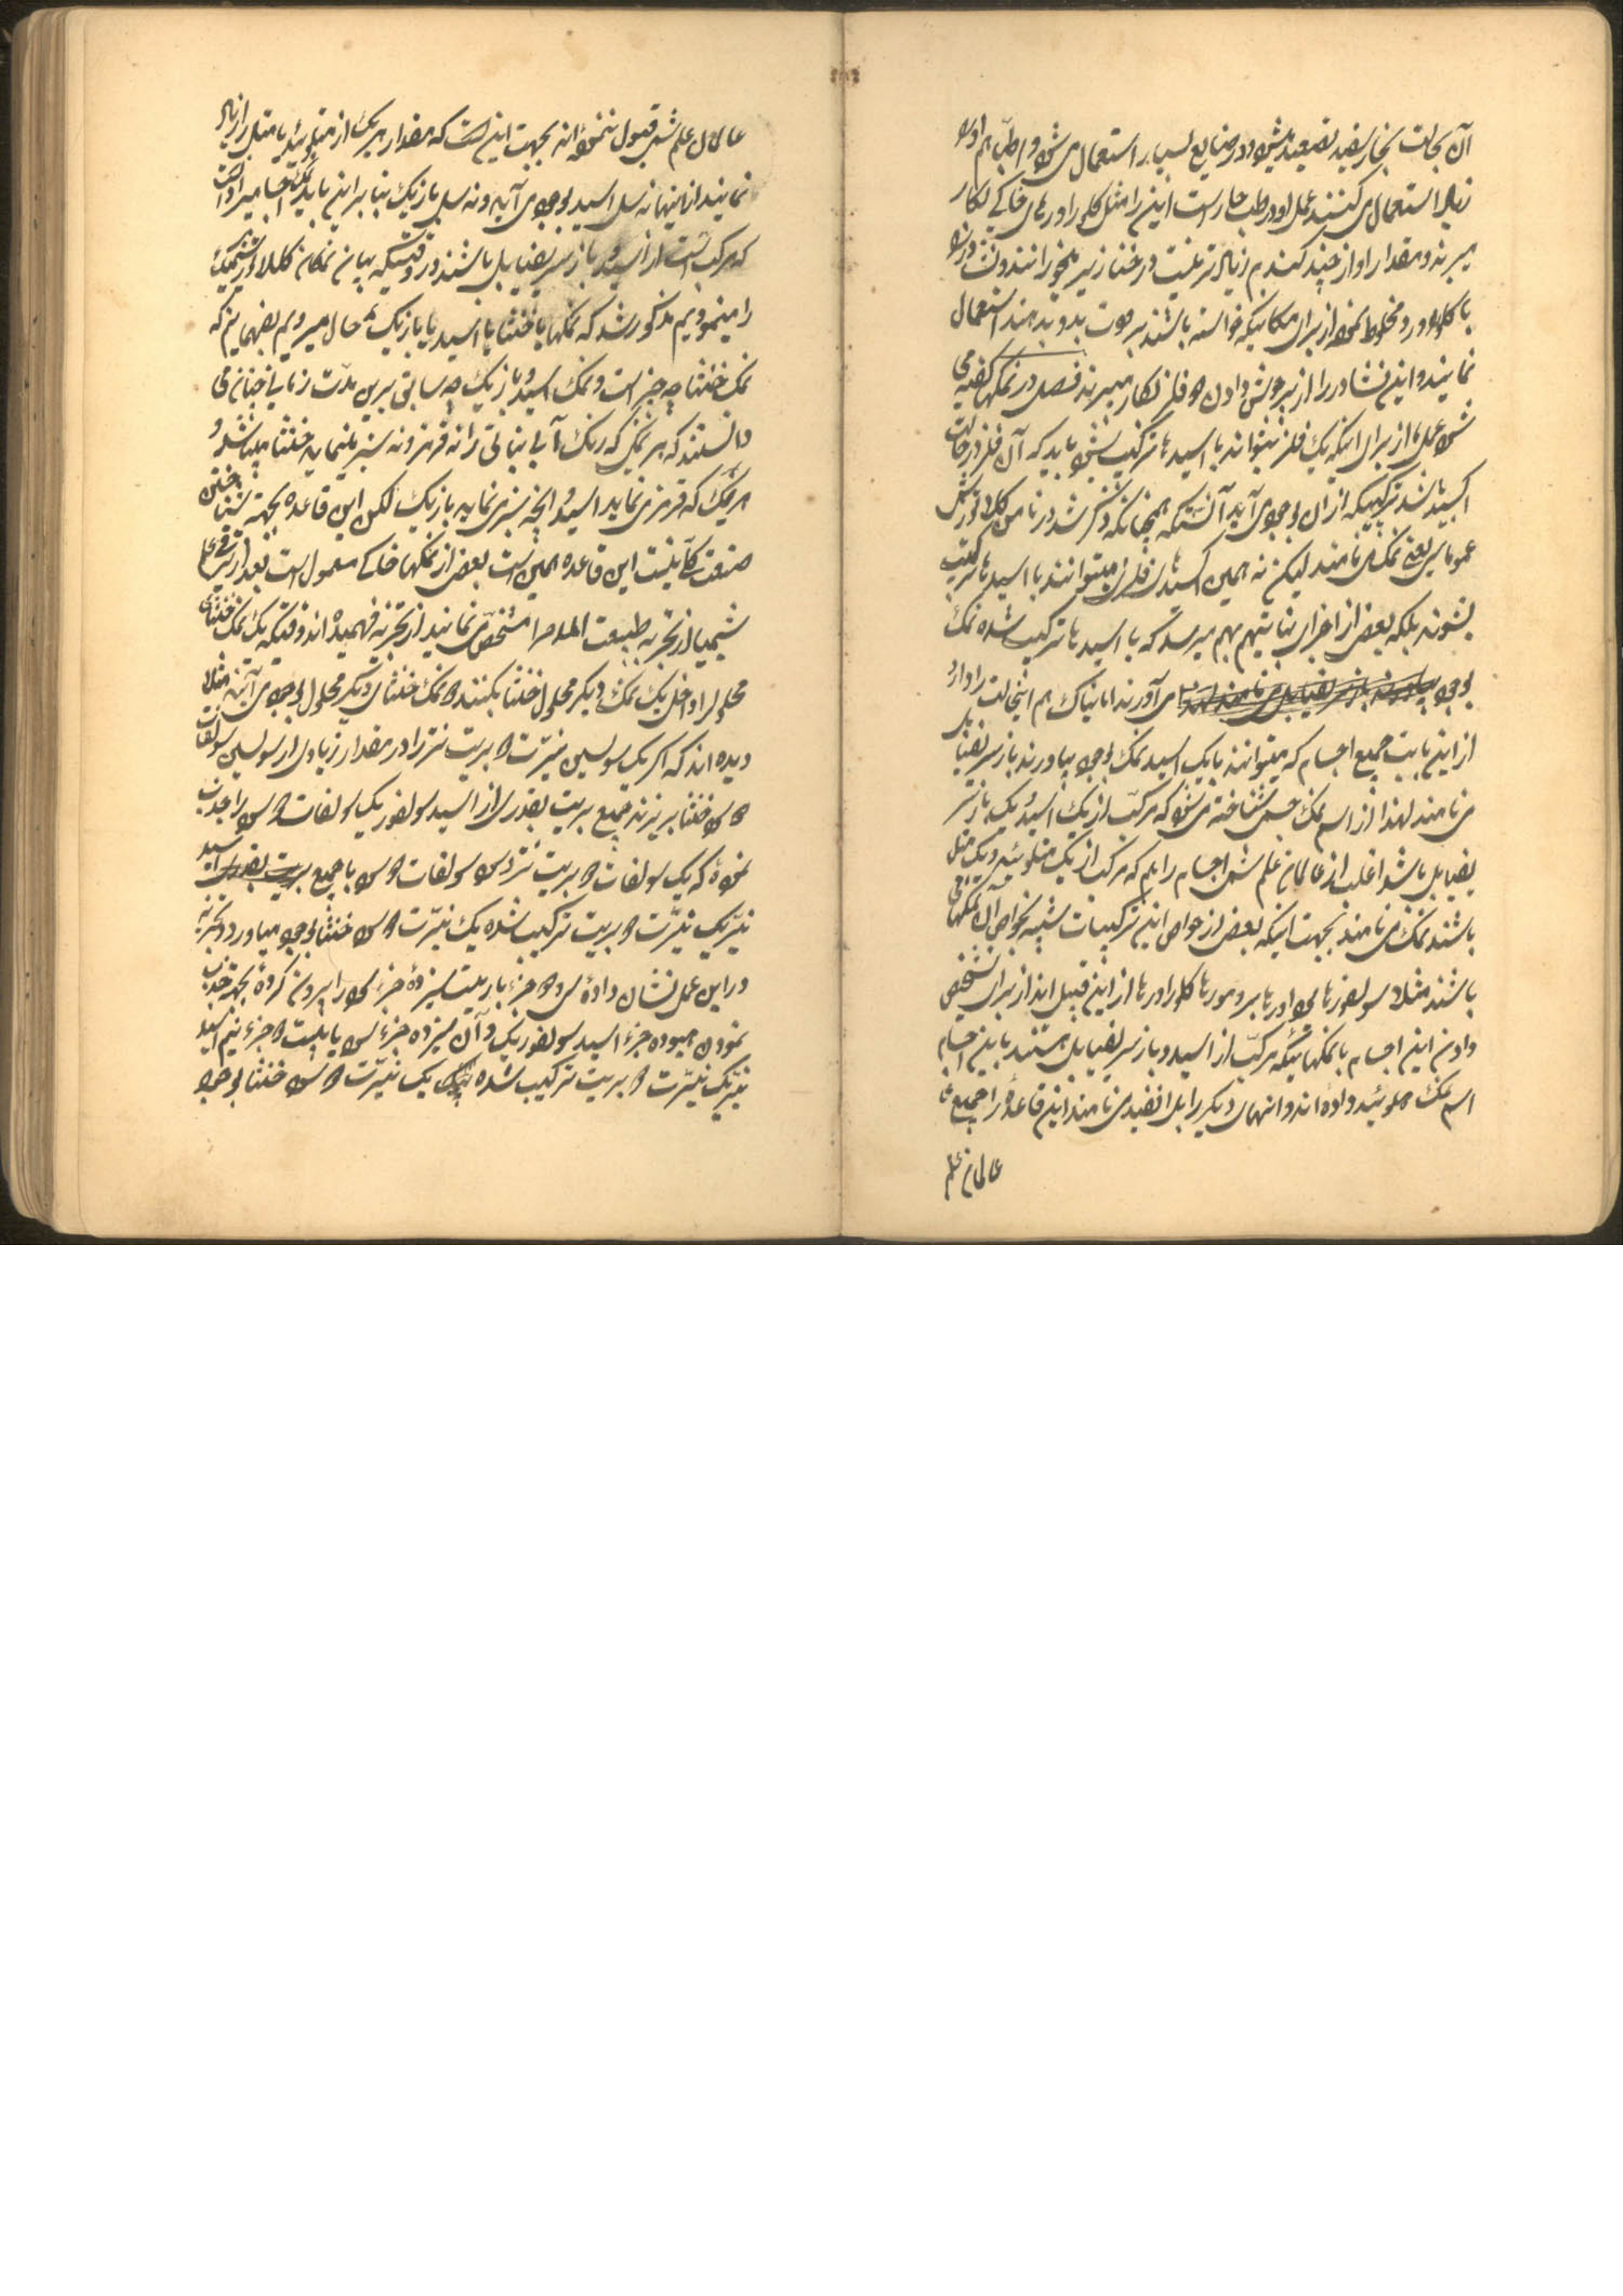 آن بحالت بخار سفید تصعید میشود و در صنایع بسیار استعمال می شود و اطبا هم او را
زیاد استعمال می کنند عمل او در طب حار است این را مثل کلورا درهای خاکی بکار
میبرند و مقدار او از چند گندم زیادتر نیست در خنازیر میخورانند و نشادر را
با کلور و مخلوط نموده از برای مکانیکه خواسته باشند برودت بدو بدهند استعمال
نمایند و این نشادر را از برای جوش دادن دو فلز بکار میبرند فصل در نمکها گفته می
شود عملا از برای اینکه یک فلز بتواند با اسیدها ترکیب شود باید که آن فلز در حالت
اکسید باشد ترکیبیکه از آن بوجود می آید آنستکه همچنانکه ذکر شد در نامن کلاتور مثل
عموما سل یعنی نمک می نامند لیکن نه همین اکسیدهای فلزی میتوانند با اسیدها ترکیب
بشوند بلکه بعض از اجزای نباتی هم بهم میرسد که با اسیدها ترکیب شده نمک
بوجود می آورند امانیاک هم اینحالت را دارد
از این بابت جمیع اجسام که میتوانند با یک اسید نمک بوجود بیاورند باز سلیفیابل
می نامند لهذا از اسم نمک جسمی شناخته می شود که مرکب از یک اسید و یک باز سلیفیابل
باشد اغلب از عالمان علم شیمی اجسام را هم که مرکب از یک متلوئید و یک متل
باشند نمک می نامند بجهت اینکه بعض از خواص این ترکیبات شبیه بخواص آن نمکها می
باشند مثلا سولفورها یودورها برومورها کلورا درها از این قبیل اند از برای تشخیص
دادن این اجسام با نمکهائیکه مرکب از اسید و باز سلیفیابل هستند باین اجسام
اسم نمک هلوئید داده اند و آنهای دیگر را بل انفید می نامند این قاعده را جمیع
عالمان علم
عالمان علم شیمی قبول ننموده اند بجهت اینست که مقدار هر یک از متلوئید یا متل را زیاد
نمایند از اینها نه سل اسید بوجود می آید و نه سل بازیک بنابراین باید نمک اجسامی را دانست
که مرکب است از اسید و باز سلیفیابل باشند در وقتیکه بیان نمکان کلاتور شیمیک
را مینمودیم مذکور شد که نمکها یا خنثا یا اسید یا بازیک حال میرویم بفهمانیم که
نمک خنثا چه چیز است و نمک اسید و بازیک چه سابق برین مدت زمانی چنان می
دانستند که هر نمکی که رنگ آبی نباتی را نه قرمز و نه سبز مینماید خنثا میباشد و
هر نمک که قرمز می نماید اسید و آنچه سبز می نماید بازیک لکن این قاعده بجهت شناختن
صنعت کافی نیست این قاعده همین است بعض از نمکها خاکی معمول است بعد از ترقی علم
شیمی از تجربه طبیعت املاح را مشخص می نمایند از تجربه فهمیده اند وقتیکه یک نمک خنثای
محلول را داخل یک نمک دیگر محلول خنثا بکنند دو نمک خنثای دیگر محلول بوجود می آید مثلا
دیده اند که اگر یک سولسین نیترت د بریت نتر را در مقدار زیادی از سولسین سولفات
د سود خنثا بریزند جمیع بریت بقدری از اسید سولفوریک سولفات د سود را جذب
نموده که یک سولفات د بریت نتر و سود سولفات د سود با جمیع اسید
نیتریک نیترت د بریت ترکیب شده یک نیترت د سود خنثا بوجود میاورد و تجربه
در این عمل نشان داده سی و دو جزء باریت سیزده جزء سود را بیرون کرده بجهة جذب
نمودن هیوده جزء اسید سولفوریک و آن سیزده جزء سود با بیست و دو جزء نیم اسید
نیتریک نیترت د بریت ترکیب شده یک نیترت د سود خنثا بوجود